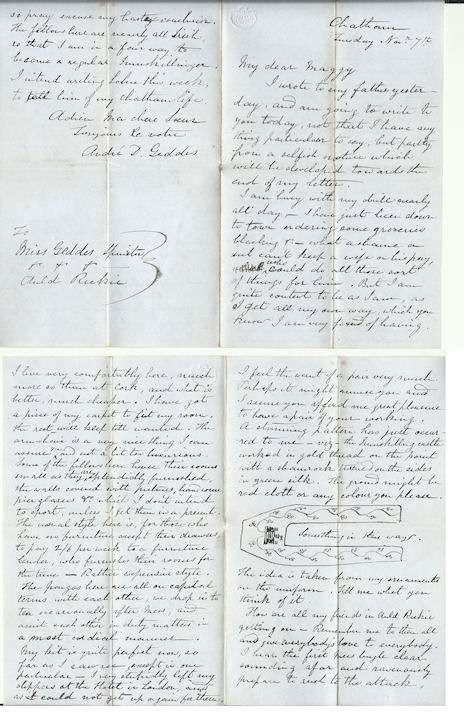 Chatham
Tuesday Nov. 7th
My dear Maggy
I wrote to my father yester-
day, and am going to write to
you today, not that I have any
thing particular to say, but partly
from a selfish motive which
will be developed towards the
end of my letter.
I am busy with my drill nearly
all day — I have just been down
to town ordering some groceries
blacking &c — what a shame a
sub can't keep a wife on his pay
who could do all those sort
of things for him. But I am
quite content to be as I am, as
I get all my own way, which you
know I am very fond of having.
I live very comfortably here, much
more so than at Cork, and what is
better, much cheaper. I have got
a piece of my carpet to fit my room,
the rest will keep till wanted. The
arm chair is a very nice thing I can
assure and not a bit too luxurious.
Some of the fellows here have their rooms
small as they are, splendidly furnished
the walls covered with pictures,
pierglasses &c which I don't intend
to sport, unless I get them in a present.
The usual style here is, for those who
have no furniture except their drawers,
to pay 2/6 per week to a furniture
lender, who furnishes their rooms for
the time — Rather expensive style.
The fellows here are all on capital
terms with each other, we drop in to
tea occasionally after Mess, and
assist each other in duty matters in
a most cordial manner.
My kit is quite perfect now, so
far as I can see, except in one
particular — I very stupidly left my
slippers at the Hotel in London, and
as it could not get up again for them,
I feel the want of a pair very much.
Perhaps it might amuse you and
I assure you afford me great pleasure
to have a pair of your working.
A stunning pattern has just occur-
red to me — viz — the Inniskilling castle
worked in gold thread on the point
with a shamrock on the sides
in green silk. The ground might be
red cloth or any colour you please.
Something in this way.
The idea is taken from my ornaments
on the uniform. Tell me what you
think of it.
How are all my friends in Auld Reekie
getting on — Remember me to them all
and give everybody's love to everybody.
I hear the first mess bugle clear
sounding afar and ravenously
prepare to rush to the attack,
so pray excuse my hasty conclusion.
The fellows here are nearly all Irish,
so that I am in a fair way to
become a regular Inniskillinger.
I intend writing this week,
to tell him of my Chatham life.
Adieu Ma chere Soeur
Toujours le votre
André D. Geddes
To
Miss Geddes Spinster
&c &c &c
Auld Reekie